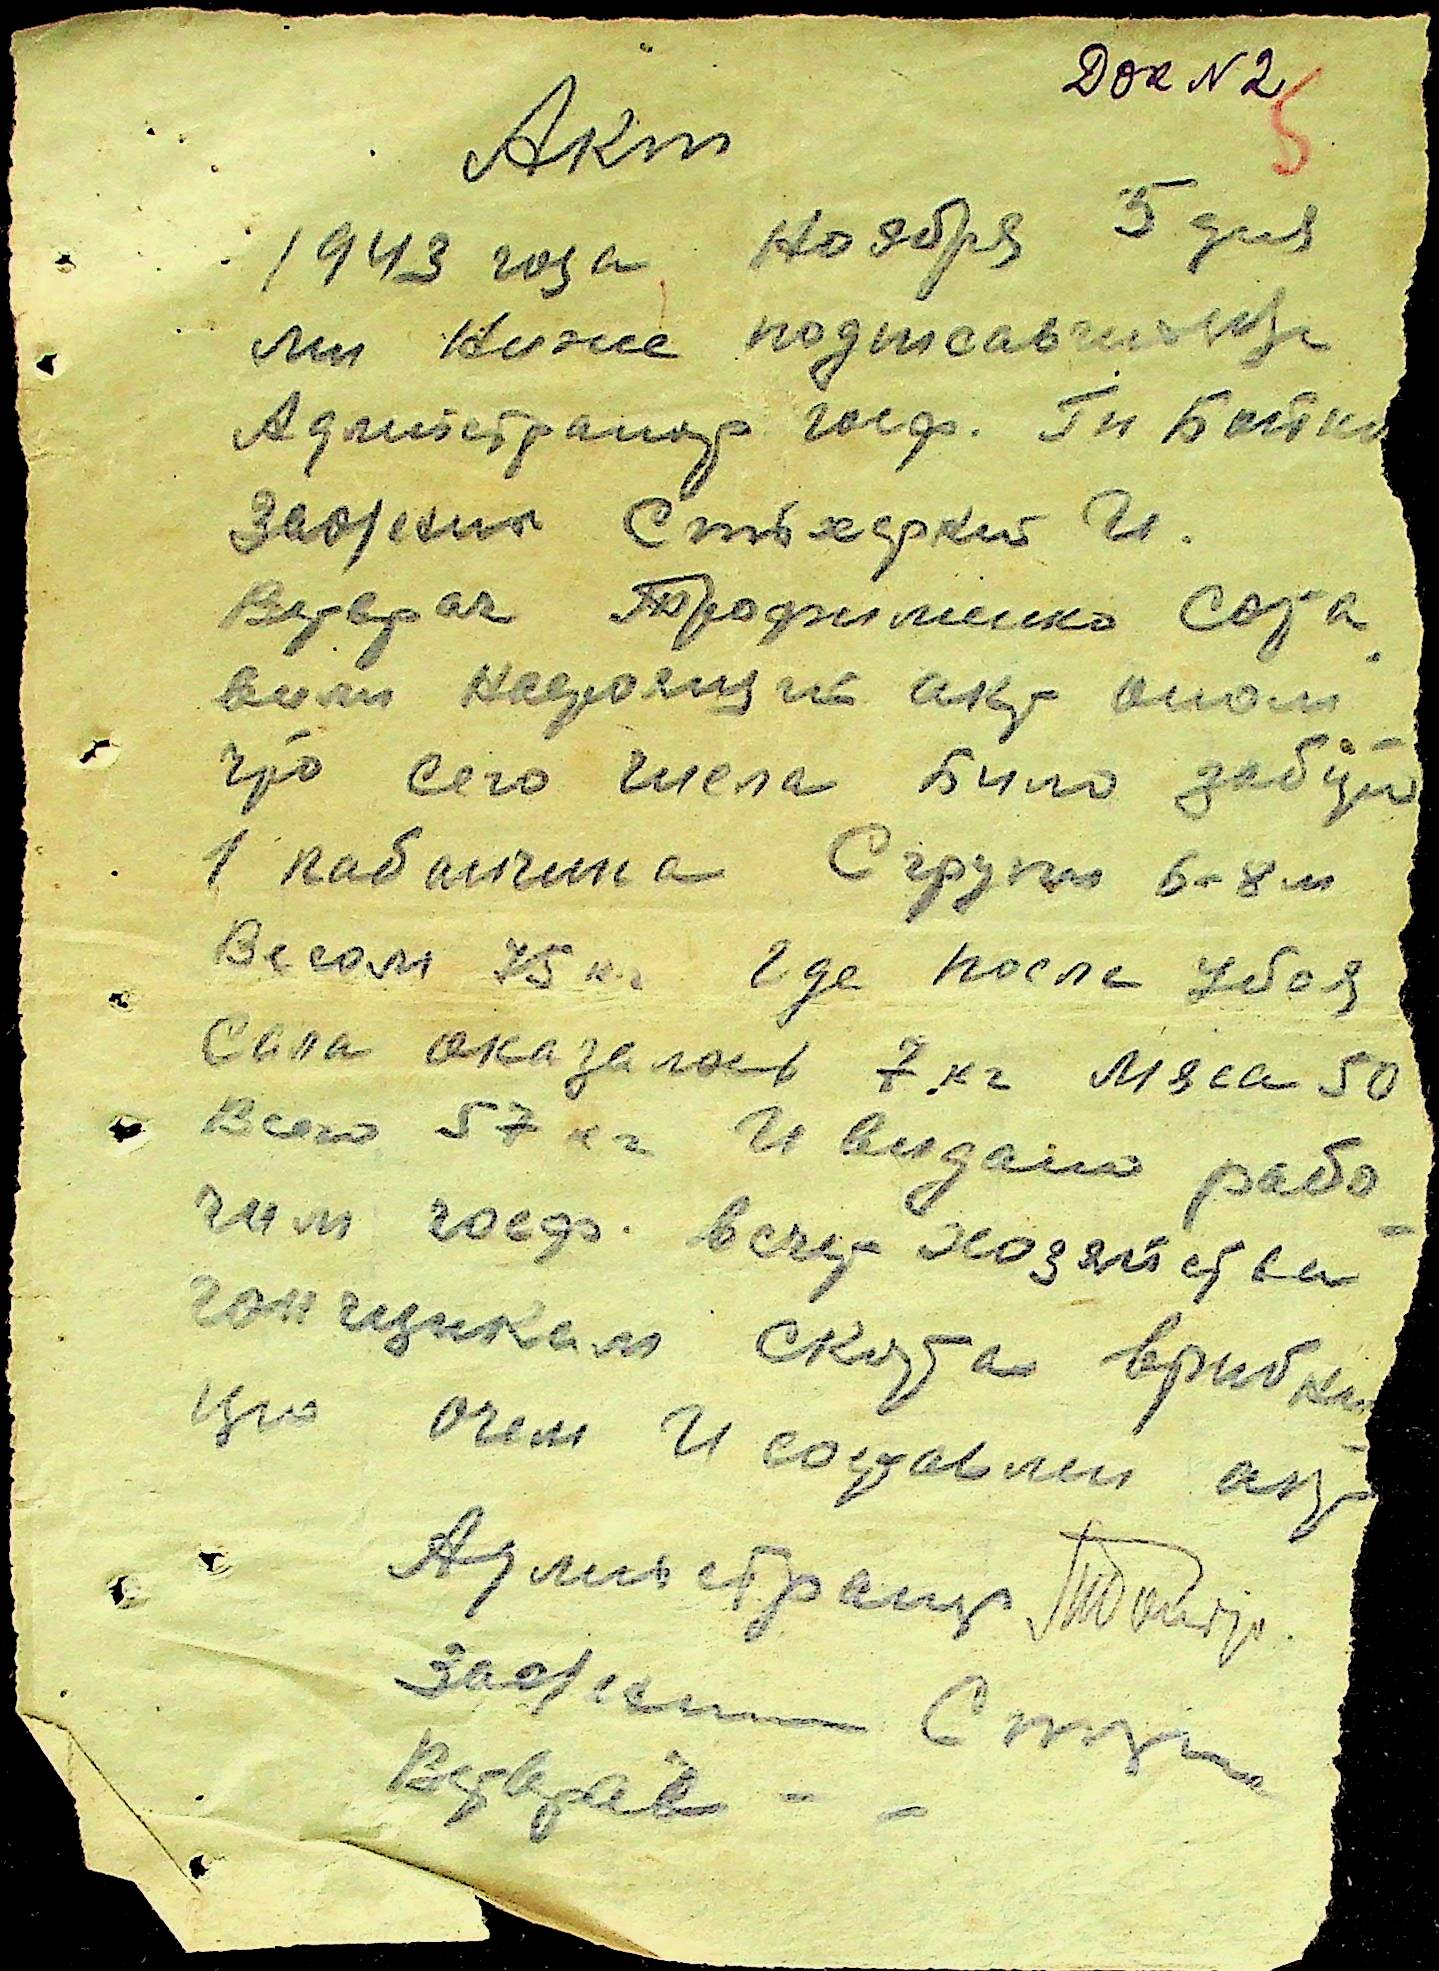 Док N 2
5
Акт
1943 года Ноября 5 дня
ми Ниже подписавшиеся
Адмистратор госф. Ги Бойко
Завферми И.
Ветврач Трофименко Соста
вили настоящий акт оном
что сего числа било забито
1 кабанчика С групи 6-8 м
Весом 75 кг где после убоя
Сала оказалось 7 кг Мяса 50
Всего 57 кг И видано рабо
чим госф. всчет хозяйства
гонщикам скота
цию очем И составлен акт
Админстратор
Завферми
Ветврач - -